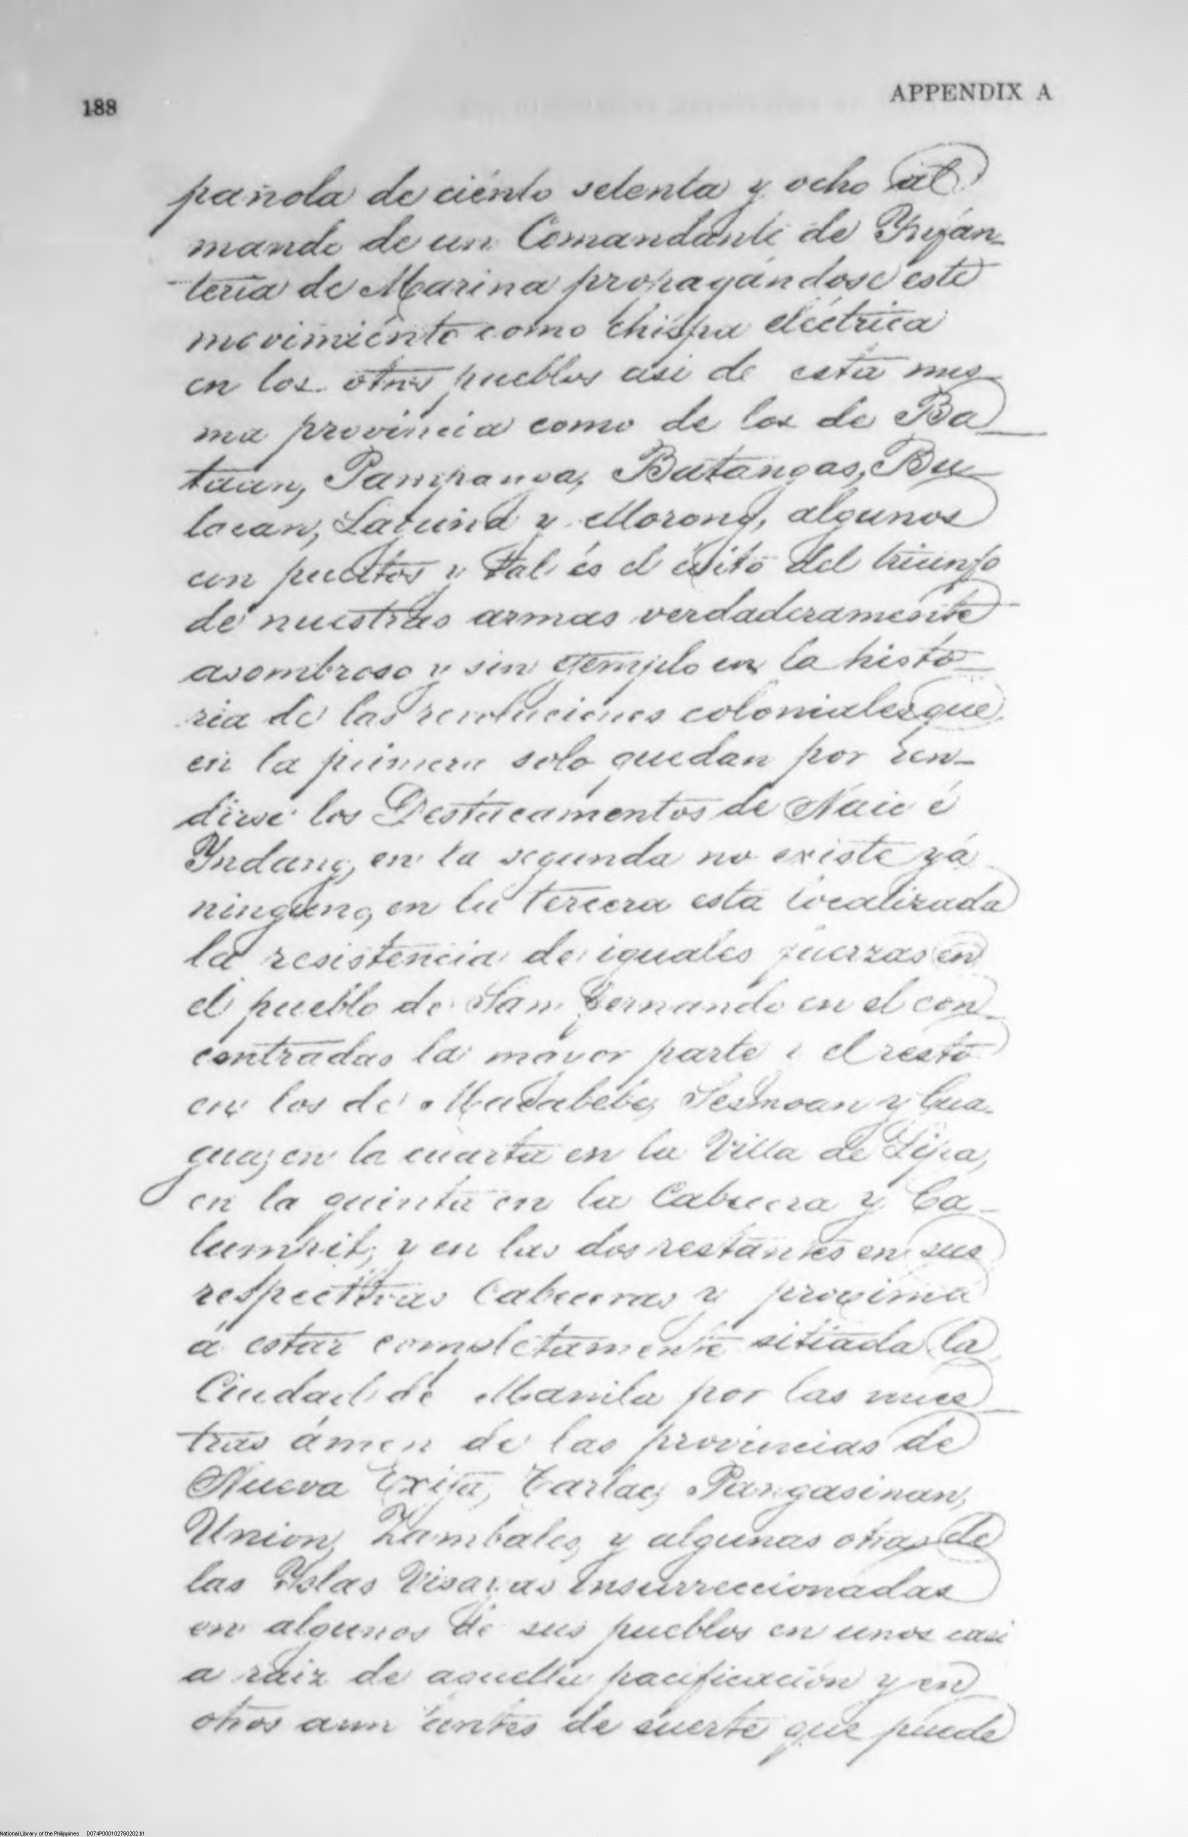 188
APPENDIX A
pañola de ciento setenta y ocho al
mando de un Comandante de Ynfan-
teria de Marina propagándose este
movimiento como chispa eléctrica
en los otros pueblos asi de esta mis-
ma provincia como de los de Ba-
taan, Pampanga, Batangas, Bu-
lacan, Laguna y Morong, algunos
con puertos y tal és el éxito del triunfo
de nuestras armas verdaderamente
asombroso y sin ejemplo en la histo-
ria de las revoluciones coloniales que
en la primera solo quedan por ren-
dirse los Destacamentos de Naic é
Yndang, en la segunda no existe yá
ninguno, en la tercera esta localizada
la resistencia de iguales fuerzas en
el pueblo de San Fernando en el con
centradas la mayor parte i el resto
en los de Macabebe, Sesmoan y Gua-
gua, en la cuarta en la Villa de Lipa,
en la quinta en la Cabecera y Ca-
lumpit, y en las dos restantes en sus
respectivas Cabeceras y proxima
á estar completamente sitiada la
Ciudad de Manila por las nues-
tras ámen de las provincias de
Nueva Exija, Tarlac, Pangasinan,
Union, Zambales, y algunas otras de
las Yslas Visayas insurreccionadas
en algunos de sus pueblos en unos casi
a raiz de aquella pacificación y en
otros aun antes de suerte que puede
National Library of the Philippines